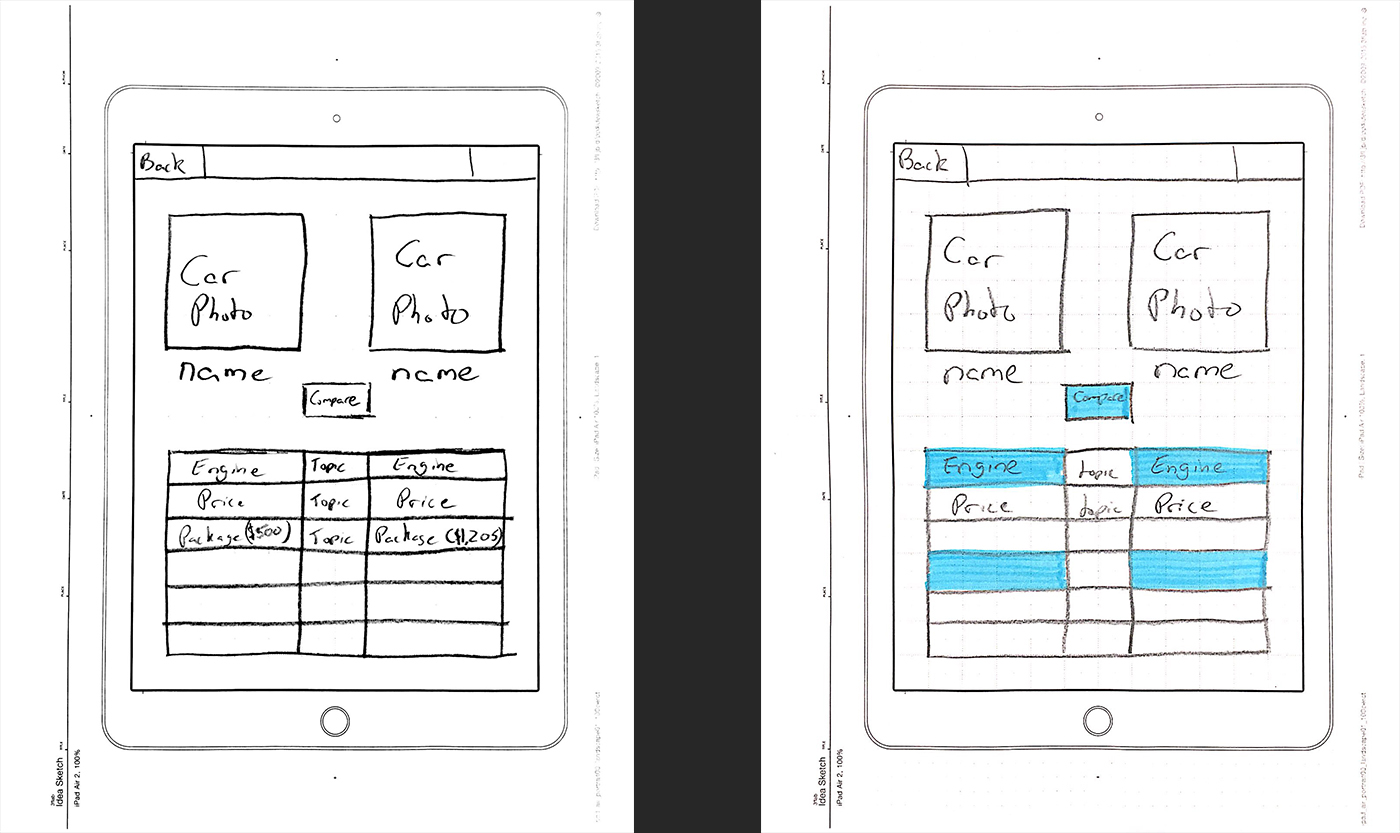 Back
Car
Photo
name
Car
Photo
name
Compare
Engine Topic Engine
Price Topic Price
Package ($500) Topic Package ($1,205)
Idea Sketch
iPad Air 2, 100%
Back
Car
Photo
name
Car
Photo
name
Compare
Engine topic Engine
Price topic Price
Idea Sketch
iPad Air 2, 100%